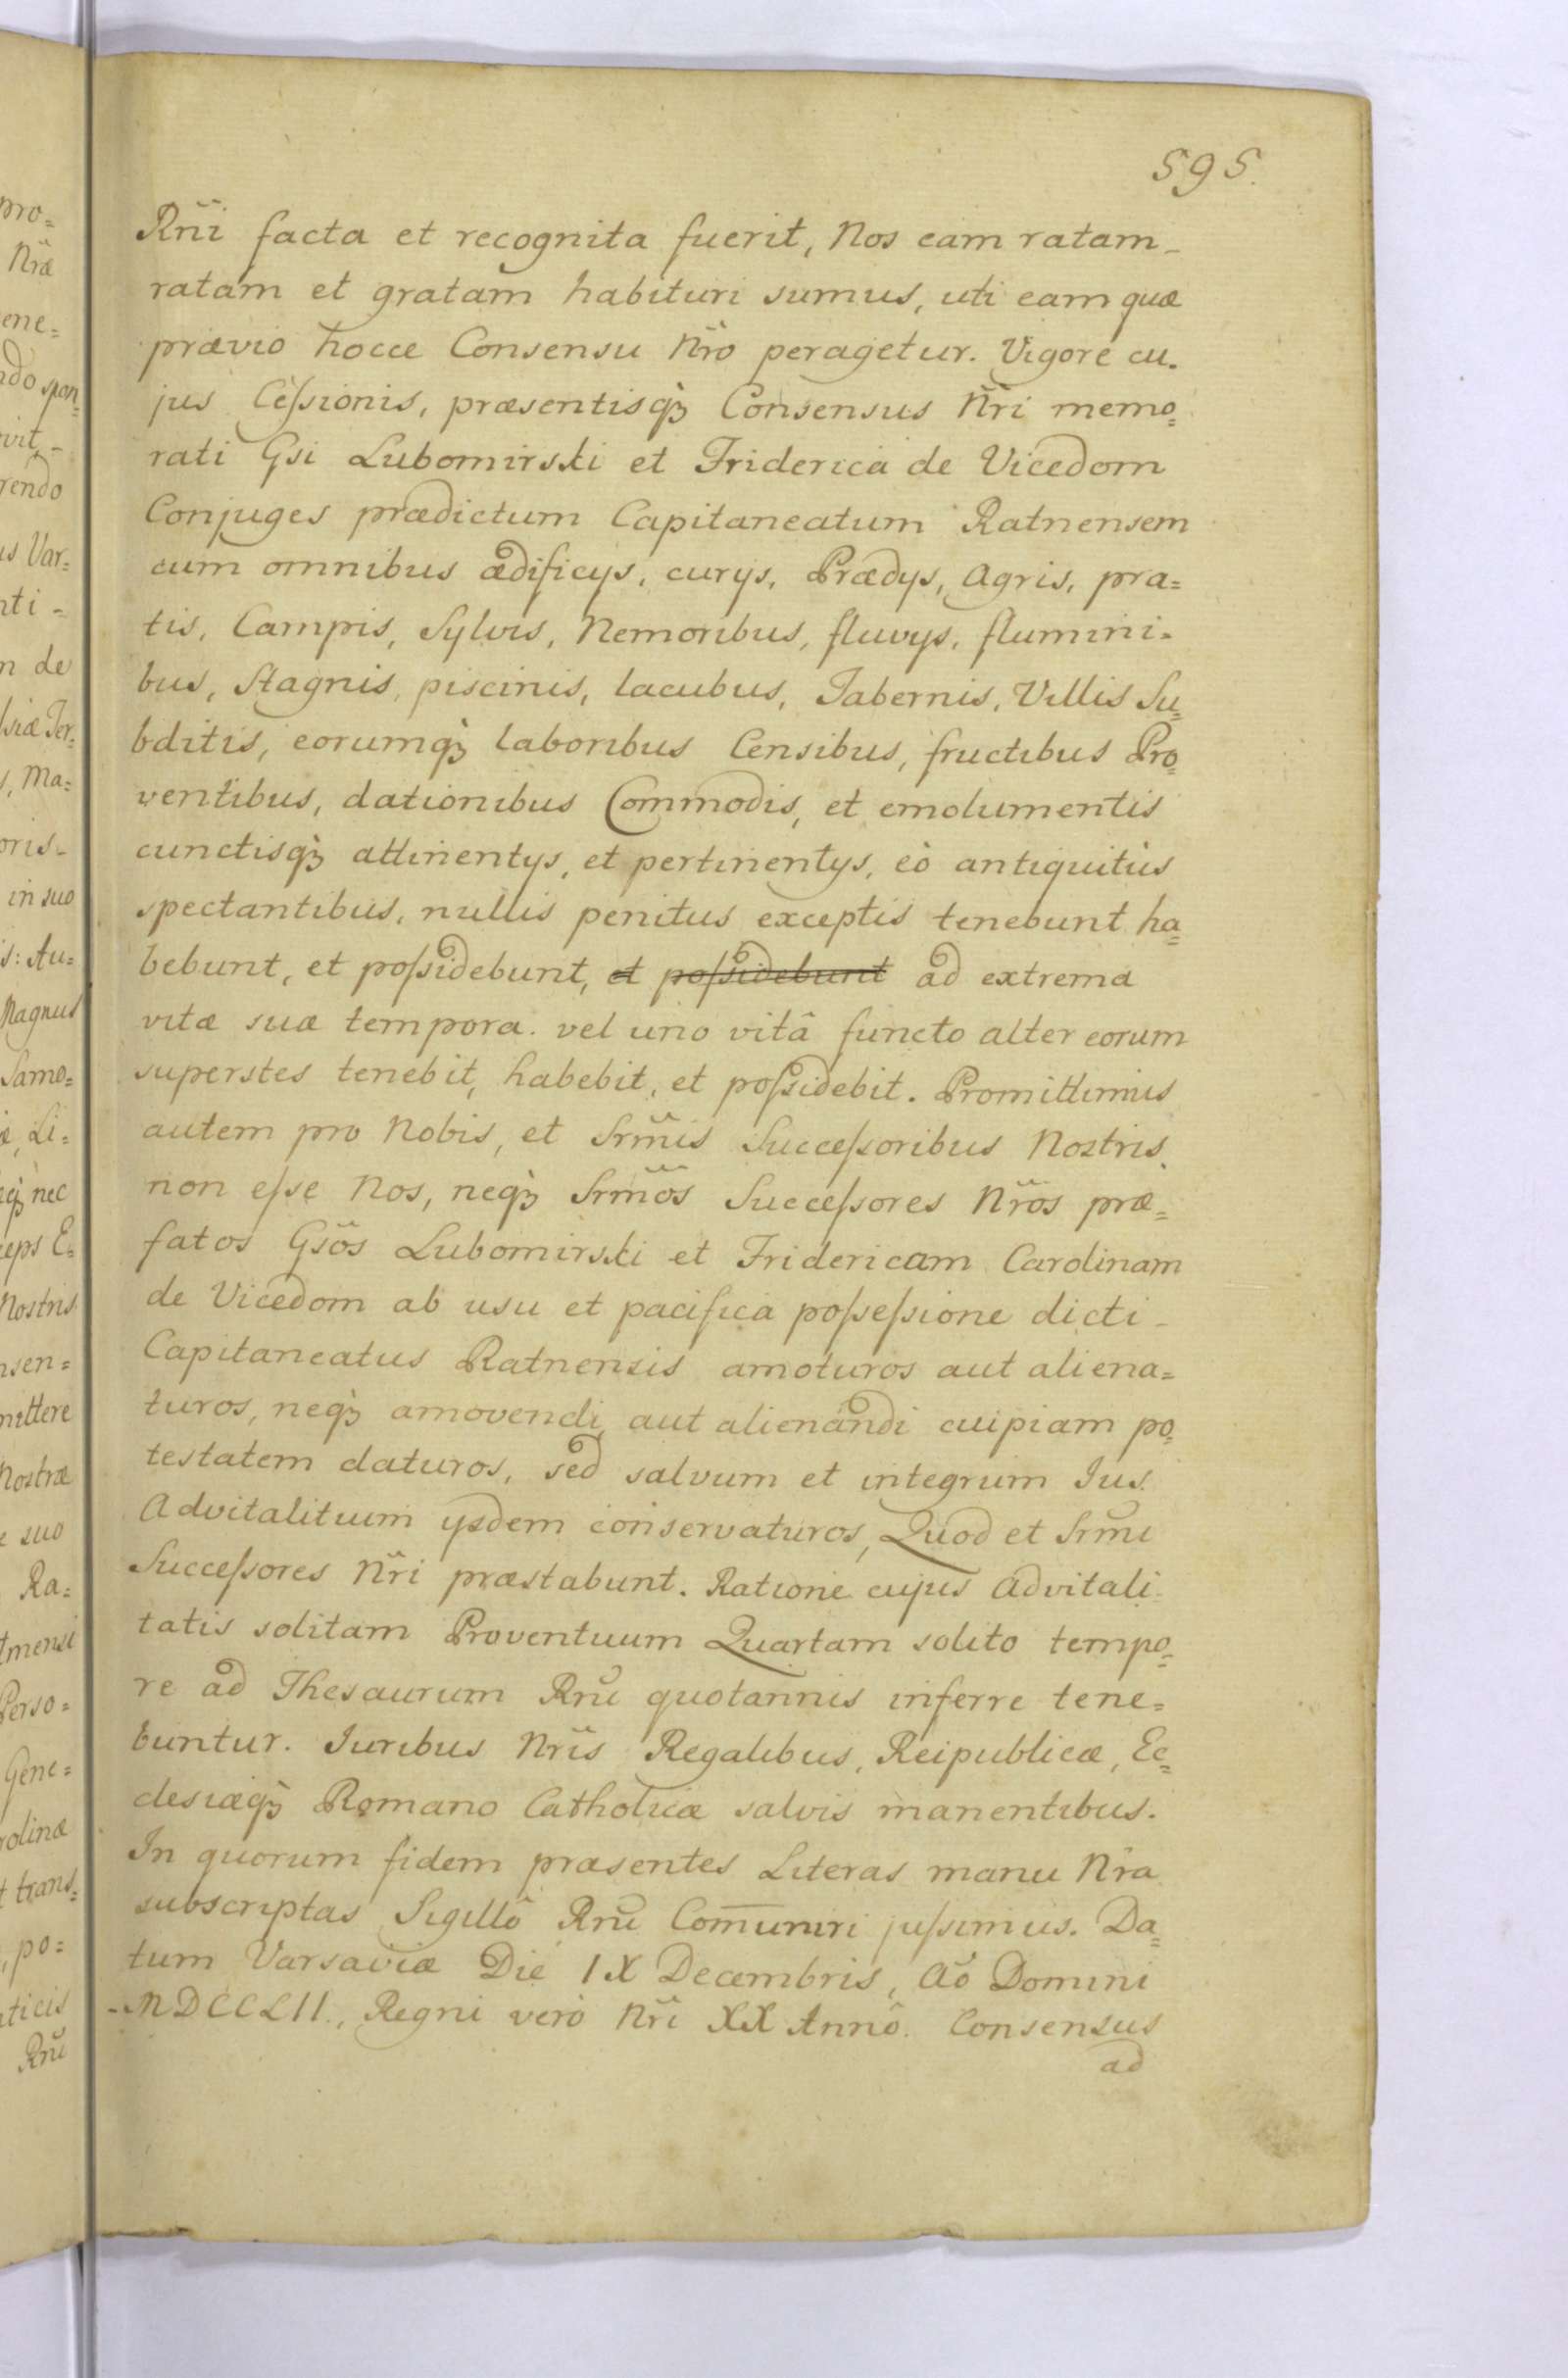 595.
Rñi facta et recognita fuerit, Nos eam ratam-
ratam et gratam habituri sumus, uti eam quæ
prævio hocce Consensu Nr̃o peragetur. Vigore cu-
jus Ceſsionis, præsentisqꝫ Consensus Nr̃i memo=
rati Gsi Lubomirski et Friderica de Vicedom
Conjuges prædictum Capitaneatum Ratnensem
cum omnibus ædificys, curys, Prædys, Agris, pra=
tis, Campis, Sylvis, Nemoribus, fluvys, flumini=
bus, Stagnis, piscinis, lacubus, Tabernis, Villis Su=
bditis, eorumqꝫ laboribus Censibus, fructibus Pro=
ventibus, dationibus Commodis, et emolumentis
cunctisqꝫ attinentys, et pertinentys, eò antiquitùs
spectantibus, nullis penitus exceptis tenebunt ha=
bebunt, et poſsidebunt, et poſsidebunt ad extrema
vitæ suæ tempora. vel uno vitâ functo alter eorum
superstes tenebit, habebit, et poſsidebit. Promittimus
autem pro Nobis, et Srm̃is Succeſsoribus Nostris,
non eſse Nos, neqꝫ Srm̃os Succeſsores Nr̃os præ=
fatos Gsõs Lubomirski et Fridericam Carolinam
de Vicedom ab usu et pacifica poſseſsione dicti-
Capitaneatus Ratnensis amoturos aut aliena=
turos, neqꝫ amovendi aut alienandi cuipiam po=
testatem daturos, sed salvum et integrum Jus
Advitalituum ysdem conservaturos, Quod et Srm̃i
Succeſsores Nr̃i præstabunt. Ratione cujus Advitali
tatis solitam Proventuum Quartam solito tempo=
re ad Thesaurum Rñi quotannis inferre tene=
buntur. Juribus Nr̃is Regalibus, Reipublicæ, Ec=
clesiæqꝫ Romano Catholicæ salvis manentibus.
In quorum fidem præsentes Literas manu Nr̃a
subscriptas Sigillô Rñi Com̄uniri juſsimus. Da=
tum Varsaviæ Die IX Decembris, Aõ Domini
MDCCLII., Regni verò Nr̃i XX Annô. Consensus
ad
pro=
Nr̃æ
ene=
ndo spon=
vit,-
rendo
is Var=
nti-
n de
lsiæ Ter=
s, Ma=
oris-
in suo
is: Au=
Magnus
Samo=
æ, Li=
eqꝫ nec
ceps E=
Nostris
nsen=
mittere
Nostræ
e suo
Ra=
tmensi
Perso=
Gene=
rolinæ
t trans=
, po=
nticis
Rñi